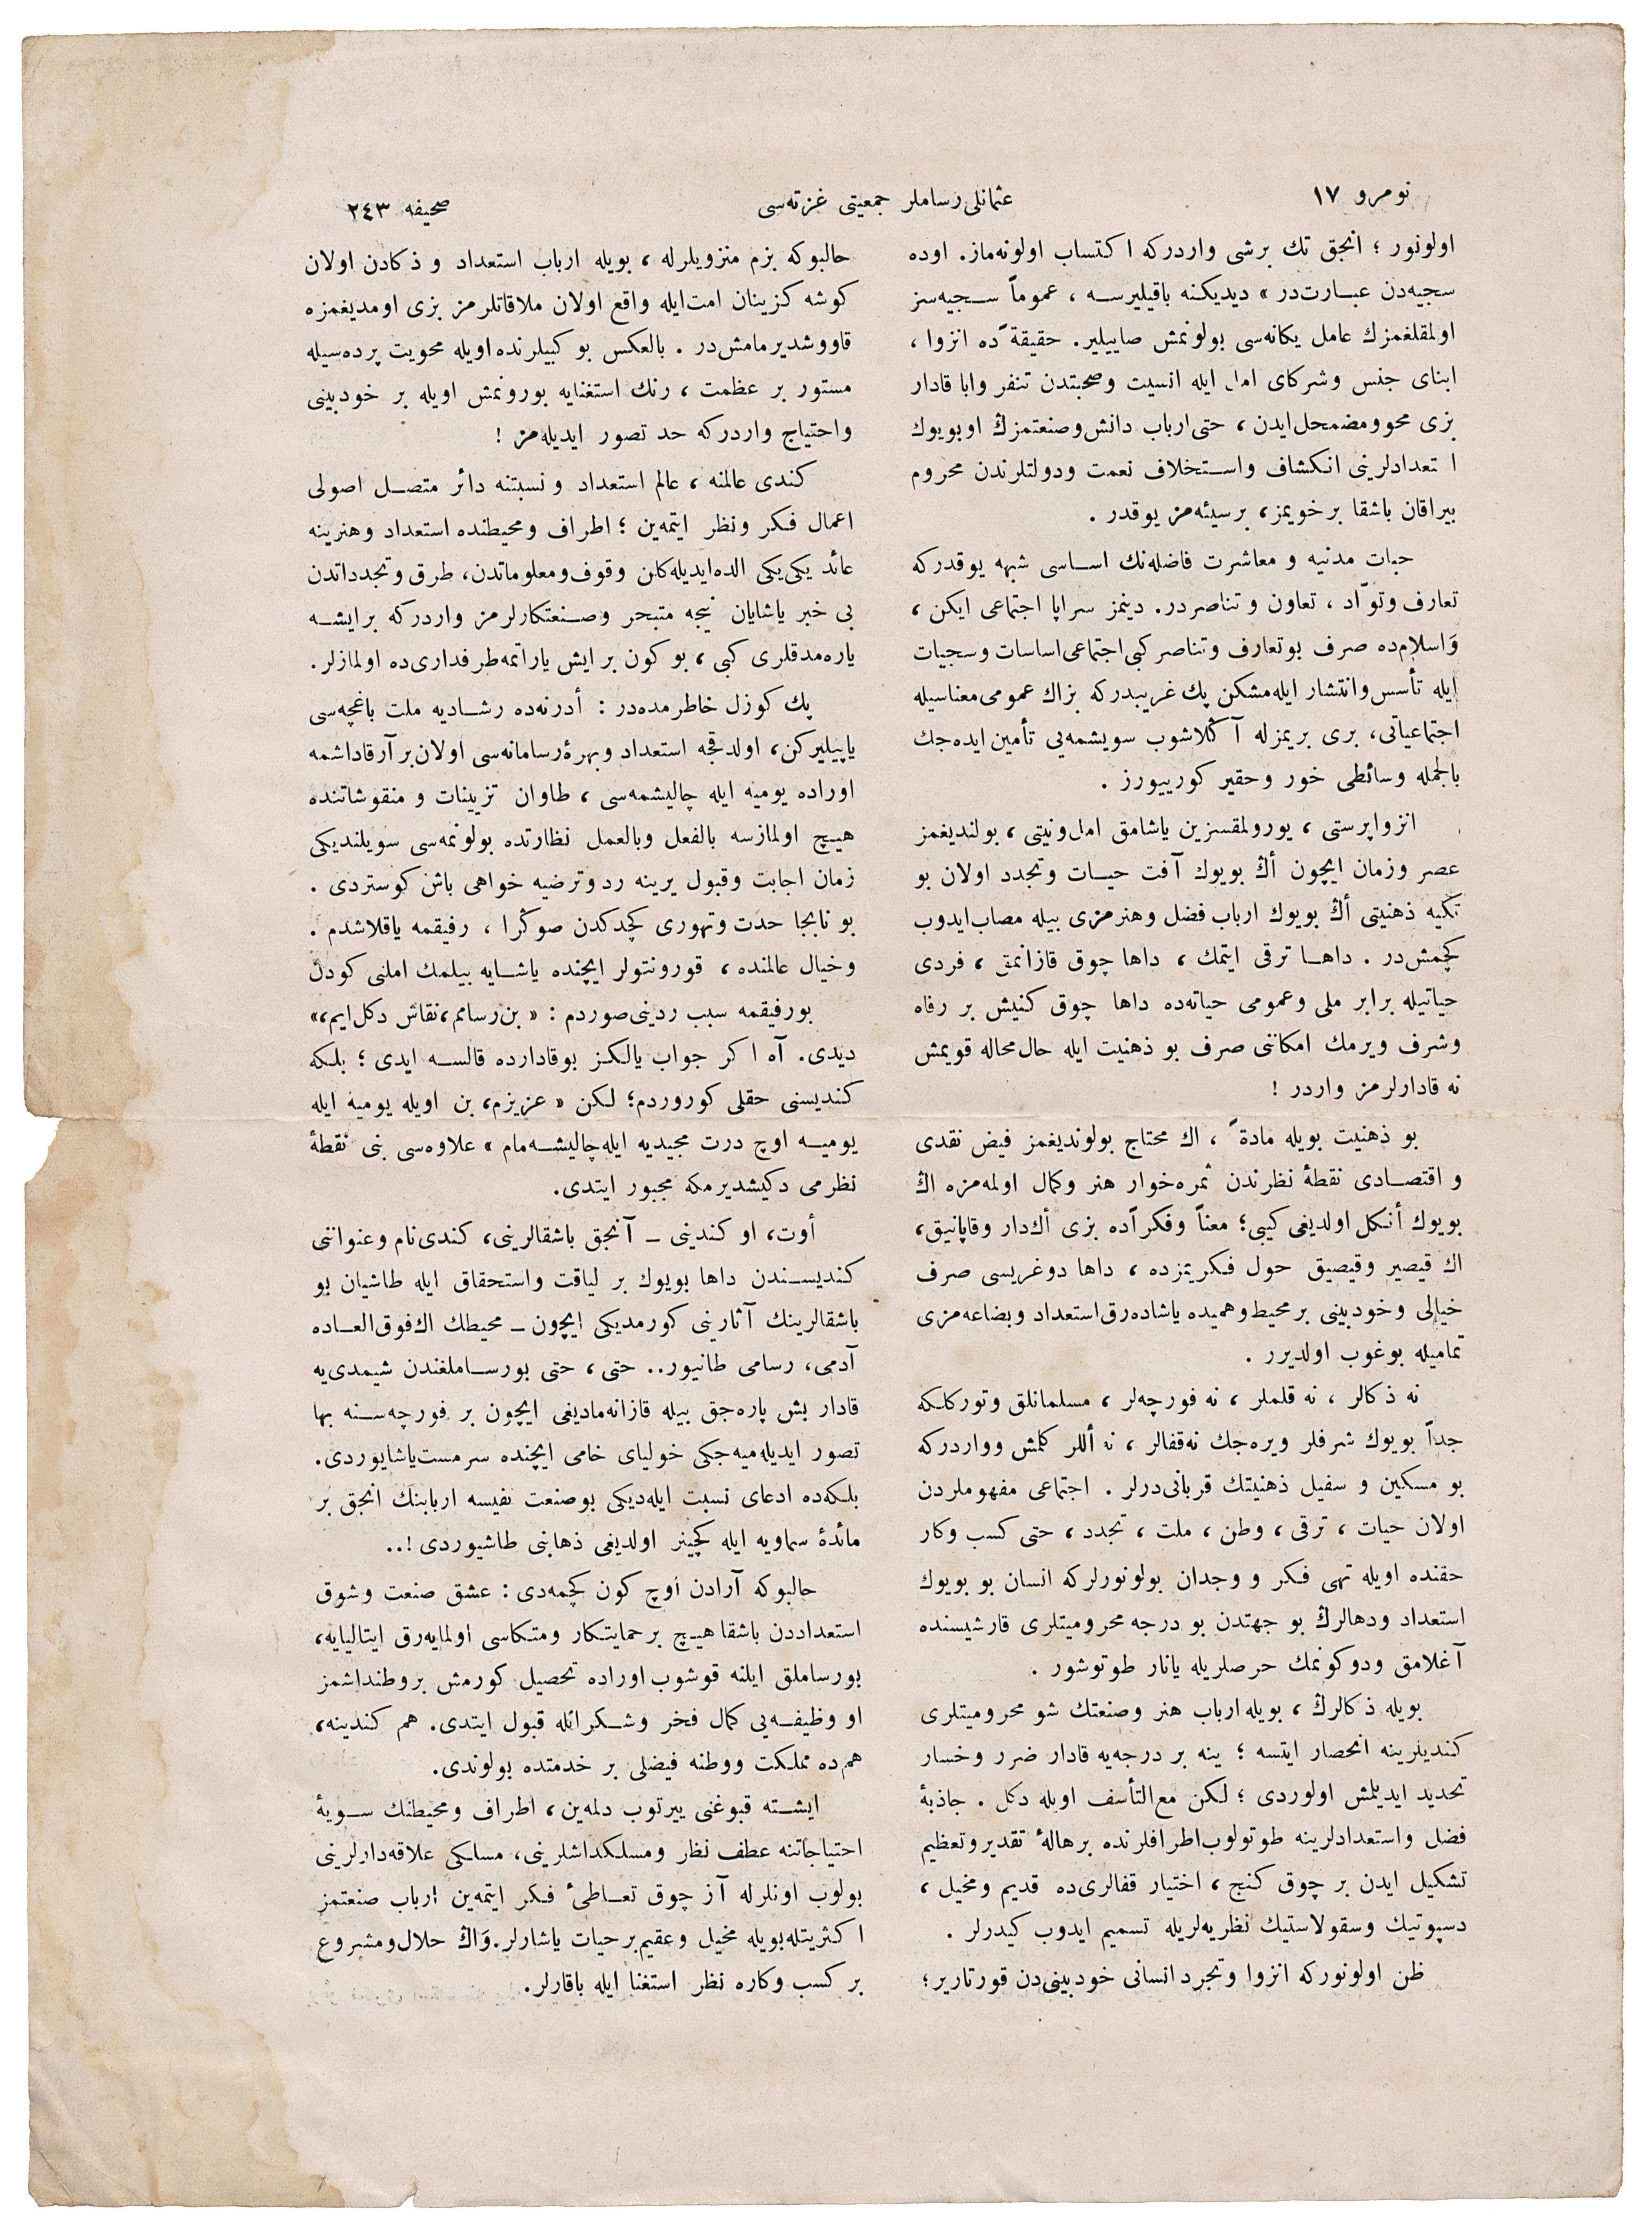 نومرو ١٧
عثمانلی رساملر جمعیتی غزته‌سی
صحیفه ٢٤٣
اولونور ؛ انجق تك برشی واردركه اكتساب اولونه‌ماز. اوده
سجیه‌دن عبارت‌در » دیدیكنه باقیلیرسه ، عموماً سجیه‌سز
اولمقلغمزك عامل یكانه‌سی بولونمش صاییلیر. حقیقةً ده انزوا ،
ابنای جنس وشركای امل ایله انسیت وصحبتدن تنفر وابا قادار
بزی محوومضمحل‌ایدن ، حتی ارباب دانش‌وصنعتمزڭ اوبویوك
ا تعدادلرینی انكشاف واستخلاف نعمت ودولتلرندن محروم
بیراقان باشقا برخویمز، برسیئه‌مز یوقدر .
حیات مدنیه و معاشرت فاضله‌نك اساسی شبهه یوقدركه
تعارف وتوّاد ، تعاون و تناصردر. دینمز سراپا اجتماعی ایكن ،
وَاسلام‌ده صرف بوتعارف وتناصر كبی‌اجتماعی‌اساسات وسجیات
ایله تأسس‌وانتشار ایله‌مشكن پك غریبدركه بزاك عمومی‌معناسیله
اجتماعیاتی، بری بریمزله آڭلاشوب سویشمه‌یی تأمین ایده‌جك
بالجمله وسائطی خور وحقیر كورییورز .
انزواپرستی ، یورولمقسزین یاشامق امل‌ونیتی ، بولندیغمز
عصر وزمان ایچون أڭ بویوك آفت حیات وتجدد اولان بو
تكیه ذهنیتی أڭ بویوك ارباب فضل وهنرمزی بیله مصاب‌ایدوب
كچمش‌در . داها ترقی ایتمك ، داها چوق قازانمق ، فردی
حیاتیله برابر ملی وعمومی حیاته‌ده داها چوق كنیش بر رفاه
وشرف ویرمك امكاننی صرف بو ذهنیت ایله حال‌محاله قویمش
نه قادارلرمز واردر !
بو ذهنیت بویله مادةً ، اك محتاج بولوندیغمز فیض نقدی
و اقتصادی نقطهٔ نظرندن ثمره‌خوار هنر وكمال اولمه‌مزه اڭ
بویوك أنكل اولدیغی كیبی؛ معناً وفكراًده بزی أك‌دار وقاپانیق،
اك قیصیر وقیصیق حول فكریمزده ، داها دوغریسی صرف
خیالی وخودبینی برمحیط‌وهمیده یاشاده‌رق‌استعداد وبضاعه‌مزی
تمامیله بوغوب اولدیرر .
نه ذكالر ، نه قلملر ، نه فورچه‌لر ، مسلمانلق وتوركلكه
جداً بویوك شرفلر ویره‌جك نه‌قفالر ، نه أللر كلمش وواردركه
بو مسكین و سفیل ذهنیتك قربانی‌درلر . اجتماعی مفهوملردن
اولان حیات ، ترقی ، وطن ، ملت ، تجدد ، حتی كسب وكار
حقنده اویله تهی فكر و وجدان بولونورلركه انسان بو بویوك
استعداد ودهالرڭ بو جهتدن بو درجه محرومیتلری قارشیسنده
آغلامق ودوكونمك حرصلریله یانار طوتوشور .
بویله ذكالرڭ ، بویله ارباب هنر وصنعتك شو محرومیتلری
كندیلرینه انحصار ایتسه ؛ ینه بر درجه‌یه قادار ضرر وخسار
تحدید ایدیلمش اولوردی ؛ لكن مع‌التأسف اویله دكل . جاذبهٔ
فضل واستعدادلرینه طوتولوب‌اطرافلرنده برهالهٔ تقدیروتعظیم
تشكیل ایدن بر چوق كنج ، اختیار قفالری‌ده قدیم ومخیل ،
دسپوتیك وسقولاستیك نظریه‌لریله تسمیم ایدوب كیدرلر .
ظن اولونوركه انزوا وتجرد انسانی خودبینی‌دن قورتاریر؛
حالبوكه بزم منزویلرله ، بویله ارباب استعداد و ذكادن اولان
كوشه كزینان امت‌ایله واقع اولان ملاقاتلرمز بزی اومدیغمزه
قاووشدیرمامش‌در . بالعكس بو كبیلرنده‌اویله محویت پرده‌سیله
مستور بر عظمت ، رنك استغنایه بورونمش اویله بر خودبینی
واحتیاج واردركه حد تصور ایدیله‌مز !
كندی عالمنه ، عالم استعداد و نسبتنه دائر متصل اصولی
اعمال فكر ونظر ایتمه‌ین ؛ اطراف ومحیطنده استعداد وهنرینه
عائد یكی‌یكی الده‌ایدیله‌كلن وقوف‌ومعلوماتدن، طرق وتجدداتدن
بی خبر یاشایان نیجه متبحر وصنعتكارلرمز واردركه برایشه
یاره‌مدقلری كبی ، بو كون بر ایش یاراتمه‌طرفداری‌ده اولمازلر.
پك كوزل خاطرمده‌در : أدرنه‌ده رشادیه ملت باغچه‌سی
یاپیلیركن، اولدقجه استعداد وبهرهٔ‌رسامانه‌سی اولان‌برآرقاداشمه
اوراده یومیه ایله چالیشمه‌سی ، طاوان تزیینات و منقوشاتنده
هیچ اولمازسه بالفعل وبالعمل نظارتده بولونمه‌سی سویلندیكی
زمان اجابت وقبول یرینه رد وترضیه خواهی باش كوستردی .
بو نابجا حدت وتهوری كچدكدن صوڭرا ، رفیقمه یاقلاشدم .
وخیال عالمنده ، قورونتولر ایچنده یاشایه بیلمك املنی كودن
بورفیقمه سبب ردینی‌صوردم : « بن‌رسامم،نقاش دكل‌ایم،»
دیدی. آه اكر جواب یالكز بوقادارده قالسه ایدی ؛ بلكه
كندیسنی حقلی كوروردم؛ لكن « عزیزم، بن اویله یومیه ایله
یومیه اوچ درت مجیدیه ایله‌چالیشه‌مام » علاوه‌سی بنی نقطهٔ
نظرمی دكیشدیرمكه مجبور ایتدی.
أوت، او كندینی ـ آنجق باشقالرینی، كندی‌نام وعنواننی
كندیسندن داها بویوك بر لیاقت واستحقاق ایله طاشیان بو
باشقالرینك آثارنی كورمدیكی ایچون ـ محیطك اك‌فوق‌العاده
آدمی، رسامی طانیور.. حتی ، حتی بورساملغندن شیمدی‌یه
قادار بش پاره‌جق بیله قازانه‌مادیغی ایچون بر فورچه‌سنه بها
تصور ایدیله‌میه‌جكی خولیای خامی ایچنده سرمست‌یاشایوردی.
بلكه‌ده ادعای نسبت ایله‌دیكی بوصنعت نفیسه اربابنك انجق بر
مائدهٔ سماویه ایله كچینر اولدیغی ذهابنی طاشیوردی !..
حالبوكه آرادن اوچ كون كچمه‌دی : عشق صنعت وشوق
استعداددن باشقا هیچ برحمایتكار ومتكاسی اولمایه‌رق ایتالیایه،
بورساملق ایلنه قوشوب اوراده تحصیل كورمش بروطنداشمز
او وظیفه‌یی كمال فخر وشكرانله قبول ایتدی. هم كندینه،
هم‌ده مملكت ووطنه فیضلی بر خدمتده بولوندی.
ایشته قبوغنی ییرتوب دلمه‌ین ، اطراف ومحیطنك سویهٔ
احتیاجاتنه عطف نظر ومسلكداشلرینی، مسلكی علاقه‌دارلرینی
بولوب اونلرله آز چوق تعاطیٔ فكر ایتمه‌ین ارباب صنعتمز
اكثریتله‌بویله مخیل وعقیم‌برحیات یاشارلر.وَاڭ حلال‌ومشروع
بر كسب وكاره نظر استغنا ایله باقارلر.